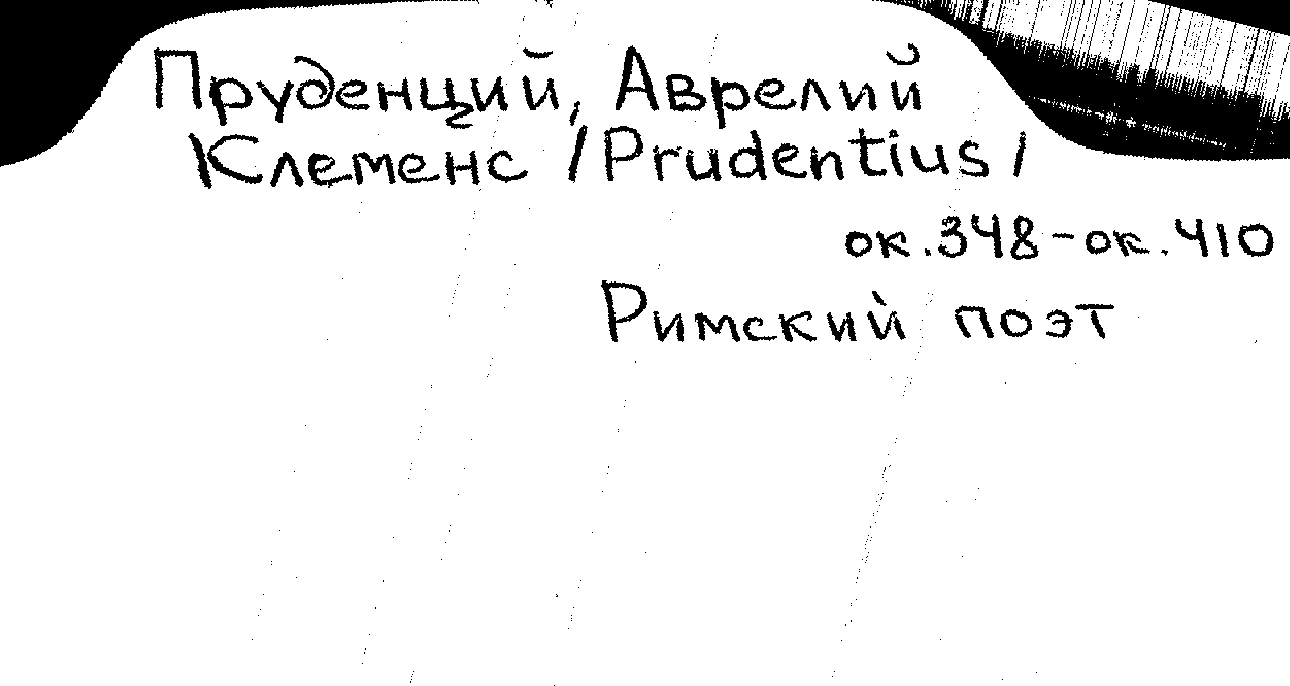 Пруденций, Аврелий
Клеменс /Prudentius/
ок.348-ок.410
Римский поэт